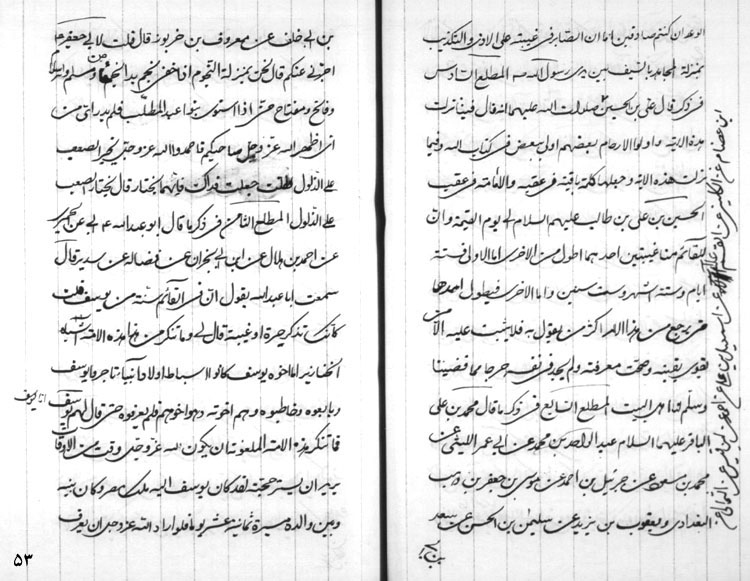 الوعد ان كنتم صادقين اما ان الصابر فى غيبته على الاذى والتكذيب
بمنزلة المجاهد بالسيف بين يدى رسول الله المطلع السادس
فى ذكر ما قال على بن الحسين صلوات الله عليهما انه قال فينا نزلت
هذه الاية واولوا الارحام بعضهم اولى ببعض فى كتاب الله وفينا
نزلت هذه الاية وجعلها كلمة باقية فى عقبه والامامة فى عقب
الحسين بن على بن ابى طالب عليهم السلام الى يوم القيمة وان
للقائم منا غيبتين احدهما اطول من الاخرى اما الاولى فستة
ايام وستة اشهر وست سنين واما الاخرى فيطول امدها
حتى يرجع من هذا الامر اكثر من يقول به فلا يثبت عليه الا من
قوى يقينه وصحت معرفته ولم يجد فى نفسه حرجا مما قضينا
وسلم لنا اهل البيت المطلع السابع فى ذكر ما قال محمد بن على
الباقر عليهما السلام عبد الواحد بن محمد عن ابى عمر الليثى عن
محمد بن مسعود عن جبرئيل بن احمد عن موسى بن جعفر بن وهب
البغدادى ويعقوب بن يزيد عن سليمان بن الحسن عن سعد
بن ابى خلف عن معروف بن خربوذ قال قلت لابى جعفر
اخبرنى عنكم قال نحن بمنزلة النجوم اذا خفى نجم بدا نجم وسلم واسلام
وفاتح ومفتاح حتى اذا استوى بنوا عبد المطلب فلم يدر اى من
اى اظهر الله عز وجل صاحبكم فاحمدوا الله عز وجل يخير الصعب
على الذلول فقلت جعلت فداك فايهما يختار قال يختار الصعب
على الذلول المطلع الثامن فى ذكر ما قال ابو عبد الله ابى عن الحميرى
عن احمد بن هلال عن ابن ابى نجران عن فضالة عن سدير قال
سمعت ابا عبد الله يقول ان فى القائم سنة من يوسف قلت
كانك تذكر حيرة او غيبة قال لى وما تنكر من هذا هذه الامة اشباه
الخنازير ان اخوة يوسف كانوا اسباطا اولاد انبياء تاجروا يوسف
وبايعوه وخاطبوه وهم اخوته وهو اخوهم فلم يعرفوه حتى قال لهم يوسف
انا يوسف
فما تنكر هذه الامة الملعونة ان يكون الله عز وجل فى وقت من الاوقات
يريد ان يستر حجته لقد كان يوسف اليه ملك مصر وكان بينه
وبين والده مسيرة ثمانية عشر يوما فلو اراد الله عز وجل ان يعرف
۵۳